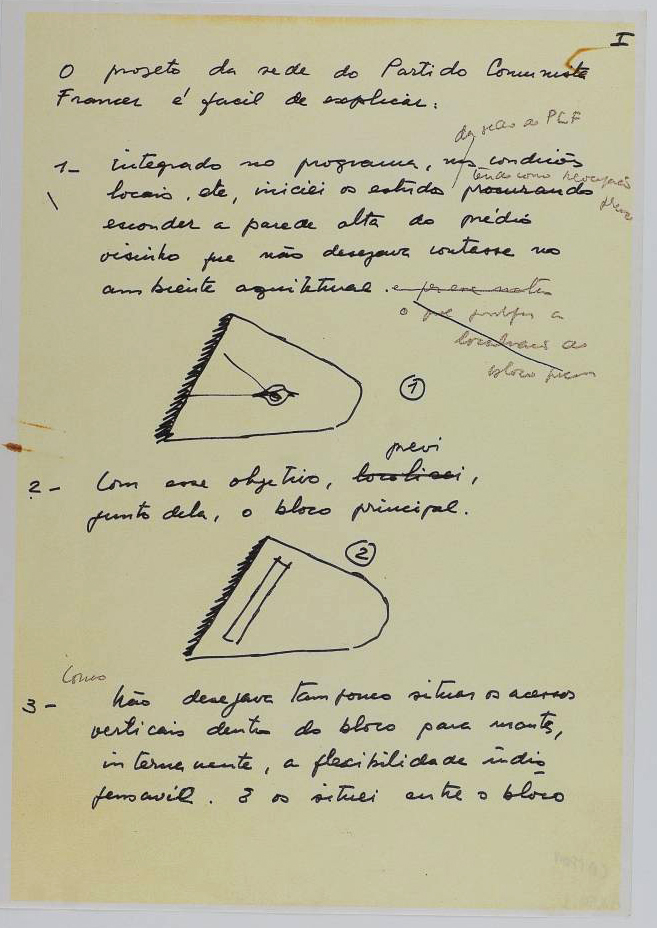 I
O projeto da sede do Partido Comunista
Frances é facil de explicar:
da sede do PCF
1- integrado no programa, nas condições
tendo como preocupação
locais, etc, iniciei os estudo procurando
esconder a parede alta do prédio
visinho que não desejava contasse no
ambiente aquitetural.
o que
a
bloco
1
previ
2- Com esse objetivo, localizei,
junto dela, o bloco principal.
2
Como
3- Não desejava tampouco situar os acessos
verticais dentro do bloco para manter,
internamente, a flexibilidade indis
pensavil. E os situei entre o bloco